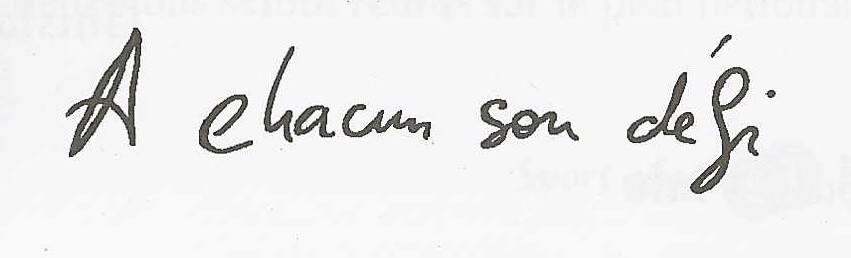 A chacun son défi